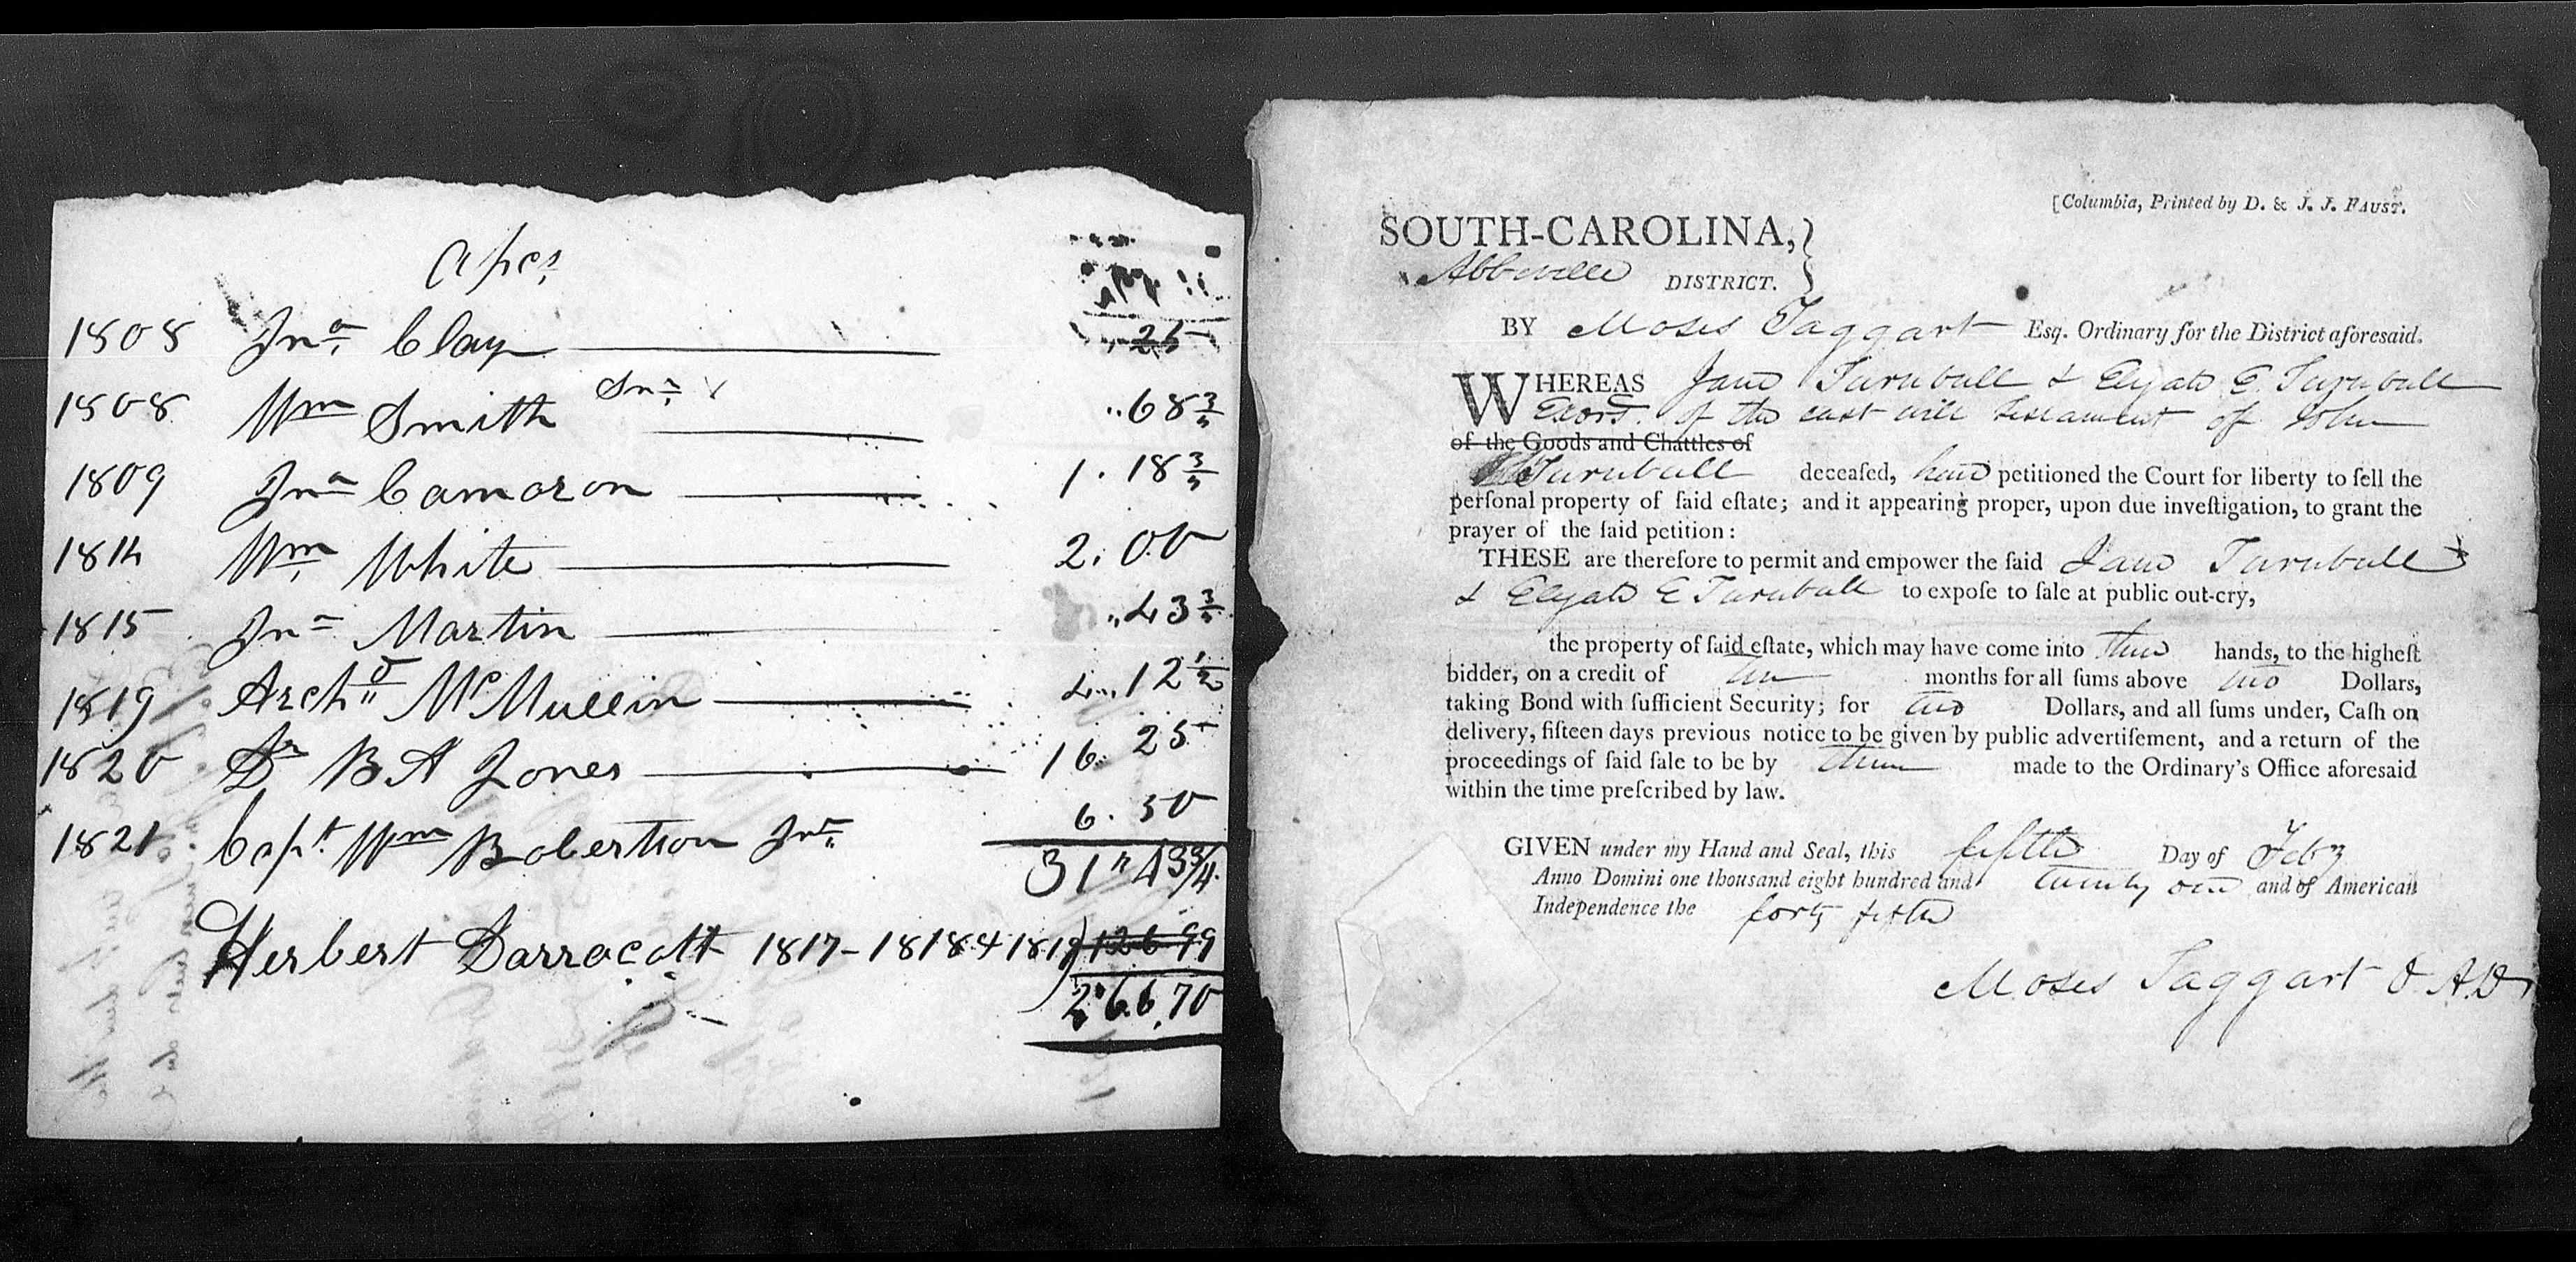 1808 Jno. Clay 25
1808 Wm Smith Snr. 68 3/4
1809 Jno Camoron 1.18 3/4
1814 Wm White 2.00
1815 Jno Martin 43 3/4
1819 Archd McMullin 4..12 1/2
1820 Dr B A Jones 16. 25
1821 Capt. Wm Robertson Jnr 6.50
31"43 3/4
Herbert Darracott 1817-1818 & 1819) 126 99
26.6.70
[Columbia, Printed by D. & J. J. FAUST.
SOUTH-CAROLINA,}
Abbeville DISTRICT.
BY Moses Taggart Esq. Ordinary for the District aforesaid.
WHEREAS Jane Turnbull & Elijah E. Turnbull
Exors. of the last will testament of John
of the Goods and Chattles of
Turnbull deceaſed, have petitioned the Court for liberty to ſell the
perſonal property of ſaid eſtate; and it appearing proper, upon due inveſtigation, to grant the
prayer of the ſaid petition:
THESE are therefore to permit and empower the ſaid Jane Turnbull
& Elijah E Turnbull to expoſe to ſale at public out-cry,
the property of ſaid eſtate, which may have come into their hands, to the higheſt
bidder, on a credit of months for all ſums above two Dollars,
taking Bond with ſufficient Security; for two Dollars, and all ſums under, Caſh on
delivery, fifteen days previous notice to be given by public advertiſement, and a return of the
proceedings of ſaid ſale to be by them made to the Ordinary's Office aforeſaid
within the time preſcribed by law.
GIVEN under my Hand and Seal, this fifth Day of Feby
Anno Domini one thousand eight hundred and twenty one and of American
Independence the forty fifth
Moses Taggart O.A.D